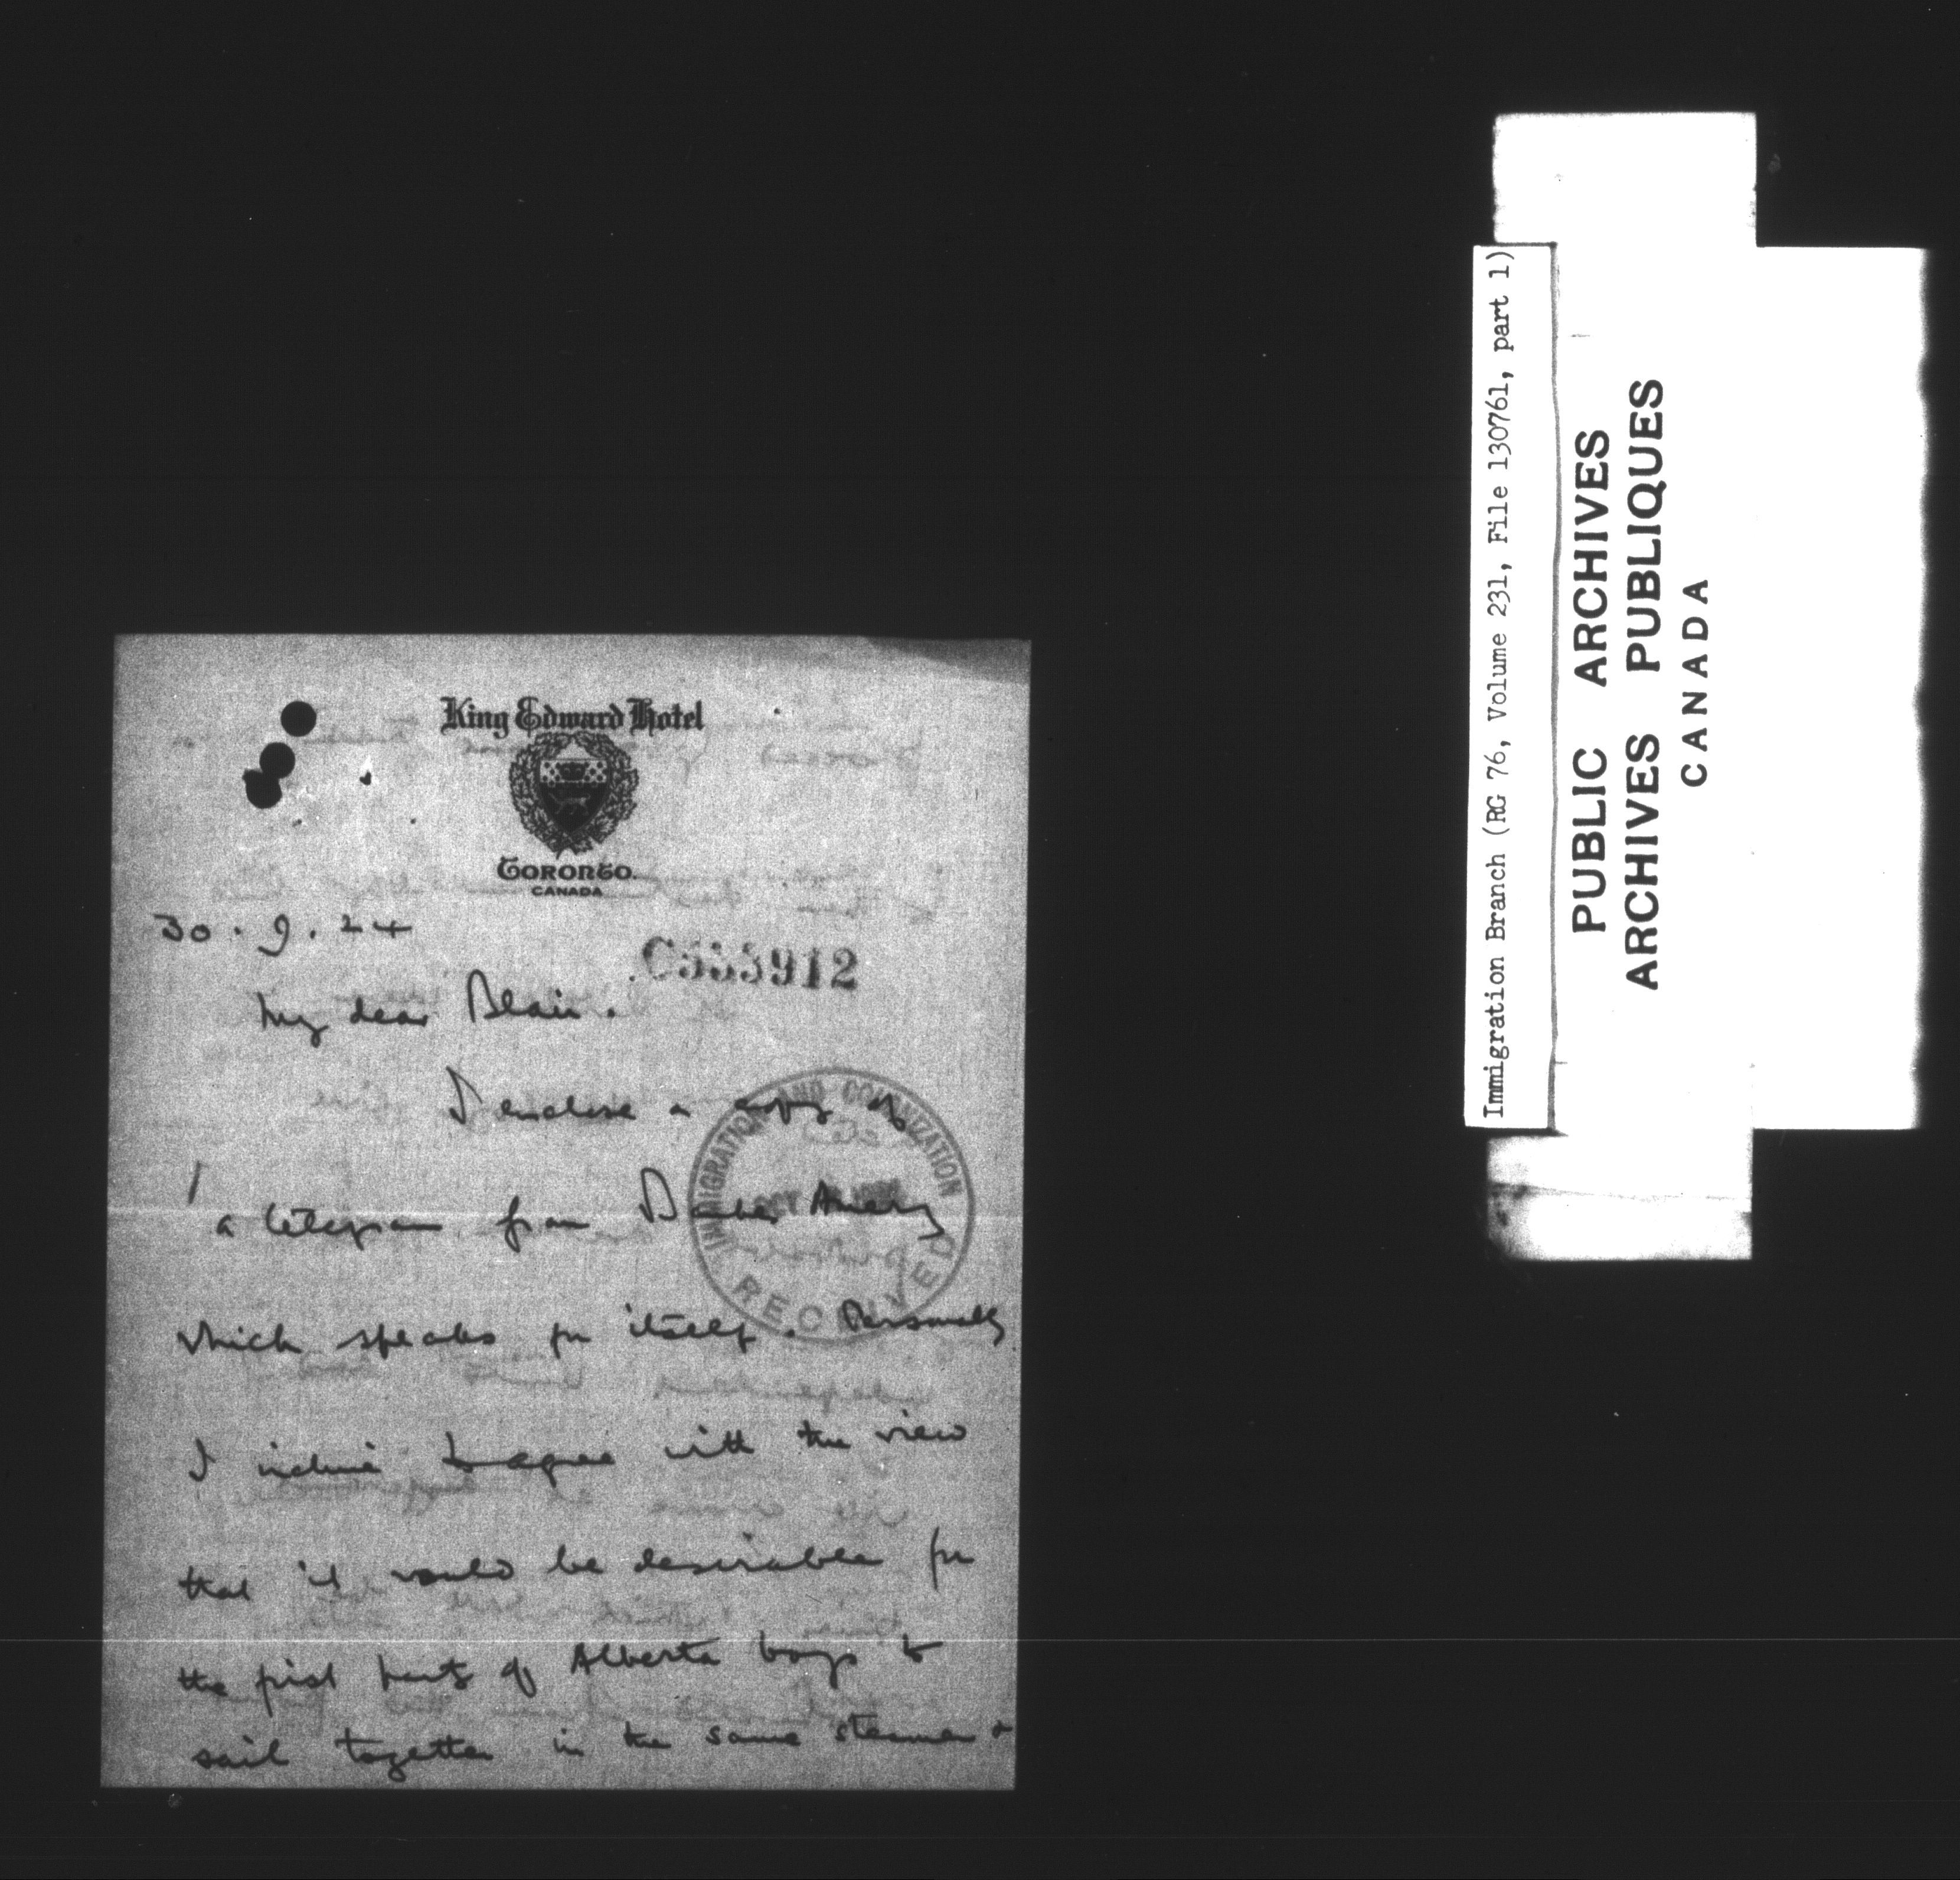 King Edward Hotel
TORONTO.
CANADA
30.9.24
C555912
My dear Blair.
I enclose a copy of
a telegram from Barber Amery
which speaks for itself. Personally
I incline to agree with the view
that it would be desirable for
the first party of Alberta boys to
sail together in the same steamer &
IMMIGRATION AND COLONIZATION
OCT
RECEIVED
Immigration Branch (RG 76, Volume 231, File 130761, part 1)
PUBLIC ARCHIVES
ARCHIVES PUBLIQUES
CANADA